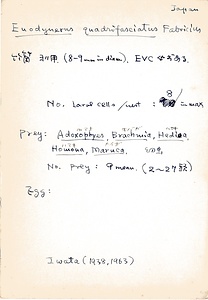 Japan
Euodynerus quadrifasciatus Fabricius
竹筒 ヨリ甲 (8-9mm in diam). EVC
No. larval cells/nest : 8 in max
Prey: Adoxophyes, Brachmia, Hedina
Homona, Maruca.
No. Prey : 9 mean. (2~27頭)
Egg:
Iwata (1938, 1963)